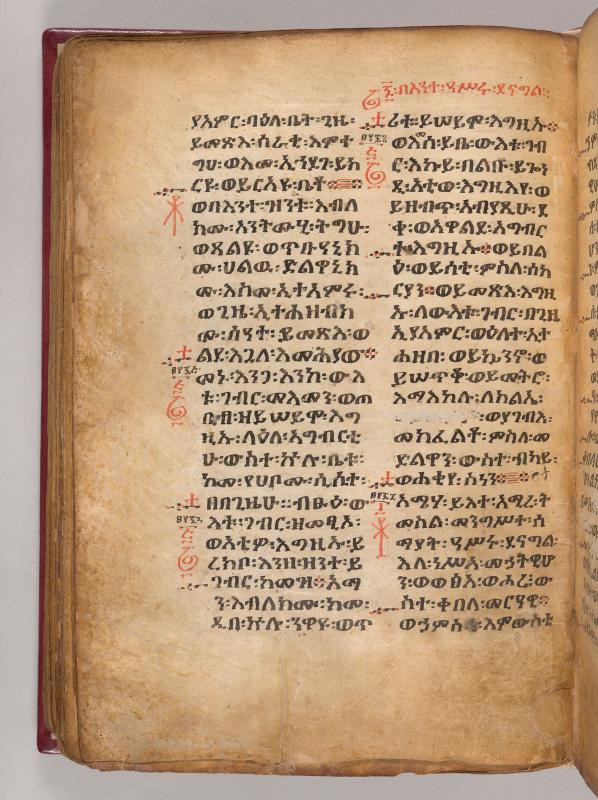 ፶፡በእንተ፡ዓሥሩ፡ደናግል፡
ያአምር፡ባዕለ፡ቤት፡ጊዜ፡
ይመጽእ፡ሰራቂ፡እምተ
ግህ፡ወእመ፡ኢኀደገ፡ይክ
ርዩ፡ወይርአዩ፡ቤቶ።
ወበእንተ፡ዝንቱ፡እብለ
ክሙ፡አንትሙሂ፡ትግሁ፡
ወጸልዩ፡ወጥቡዓኒክ
ሙ፡ሀልዉ፡ድልዋኒክ
ሙ፡እስመ፡ኢተአምሩ፡
ወጊዜ፡ኢተሐዘብክ
ሙ፡ሰዓተ፡ይመጽእ፡ወ
ልደ፡እጓለ፡እመሕያው።
መኑ፡እንጋ፡እንከ፡ውእ
ቱ፡ገብር፡መእመን፡ወጠ
ቢብ፡ዘይሠይሞ፡እግ
ዚኡ፡ላዕለ፡አግብርቲ
ሁ፡ውስተ፡ኵሉ፡ቤቱ፡
ከመ፡የሀቦሙ፡ሲሲተ፡
በበጊዜሁ፡፡ብፁዕ፡ው
እቱ፡ገብር፡ዘመጺኦ፡
ወአቲዎ፡እግዚኡ፡ይ
ረክቦ፡እንዘ፡ዝንተ፡ይ
ገብር፡ከመዝ።አማ
ን፡እብለክሙ፡ከመ፡
ዲበ፡ኵሉ፡ንዋዩ፡ወጥ
ሪቱ፡ይሠይሞ፡እግዚኡ።
ወእመሰ፡ይቤ፡ውእቱ፡ገብ
ር፡እኩይ፡በልቡ፡ይጐን
ዲ፡አቲወ፡እግዚእየ፡ወ
ይዘብጥ፡አብያጺሁ፡ደ
ቀ፡ወአዋልደ፡አግብር
ት፡እግዚኡ።ወይበል
ዕ፡ወይሰቲ፡ምስለ፡ሰከ
ርያን።ወይመጽእ፡እግዚ
ኡ፡ለውእቱ፡ገብር፡በጊዜ
ኢያአምር፡ወዕለት፡ኢተ
ሐዘበ፡ወይኴንኖ፡ወ
ይሠጥቆ፡ወይመትሮ፡
እማእከሉ፡ለክልኤ፡
ወያገብእ፡
መክፈልቶ፡ምስለ፡መ
ደልዋን፡ውስተ፡ብካይ፡
ወሐቂየ፡ስነን።
አሜሃ፡ይእተ፡አሚረ፡ት
መስል፡መንግሥተ፡ሰ
ማያት፡ዓሥሩ፡ደናግል፡
እለ፡ነሥአ፡መኃትዊሆ
ን፡ወወፅአ፡ወሖረ፡ው
ስተ፡ቀበላ፡መርዓዊ።
ወኃምስ፡እምውስቴ